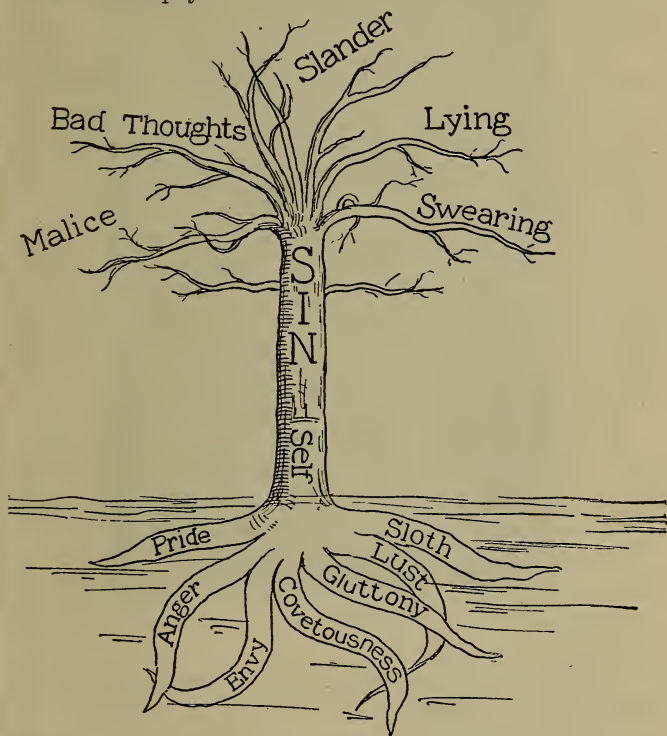 Slander
Bad Thoughts
Lying
Malice
Swearing
SIN
Self
Pride
Sloth
Lust
Anger
Gluttony
Envy
Covetousness